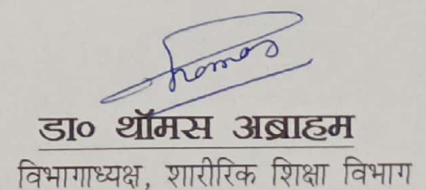 Thomas
डा० थॉमस अब्राहम
विभागाध्यक्ष, शारीरिक शिक्षा विभाग